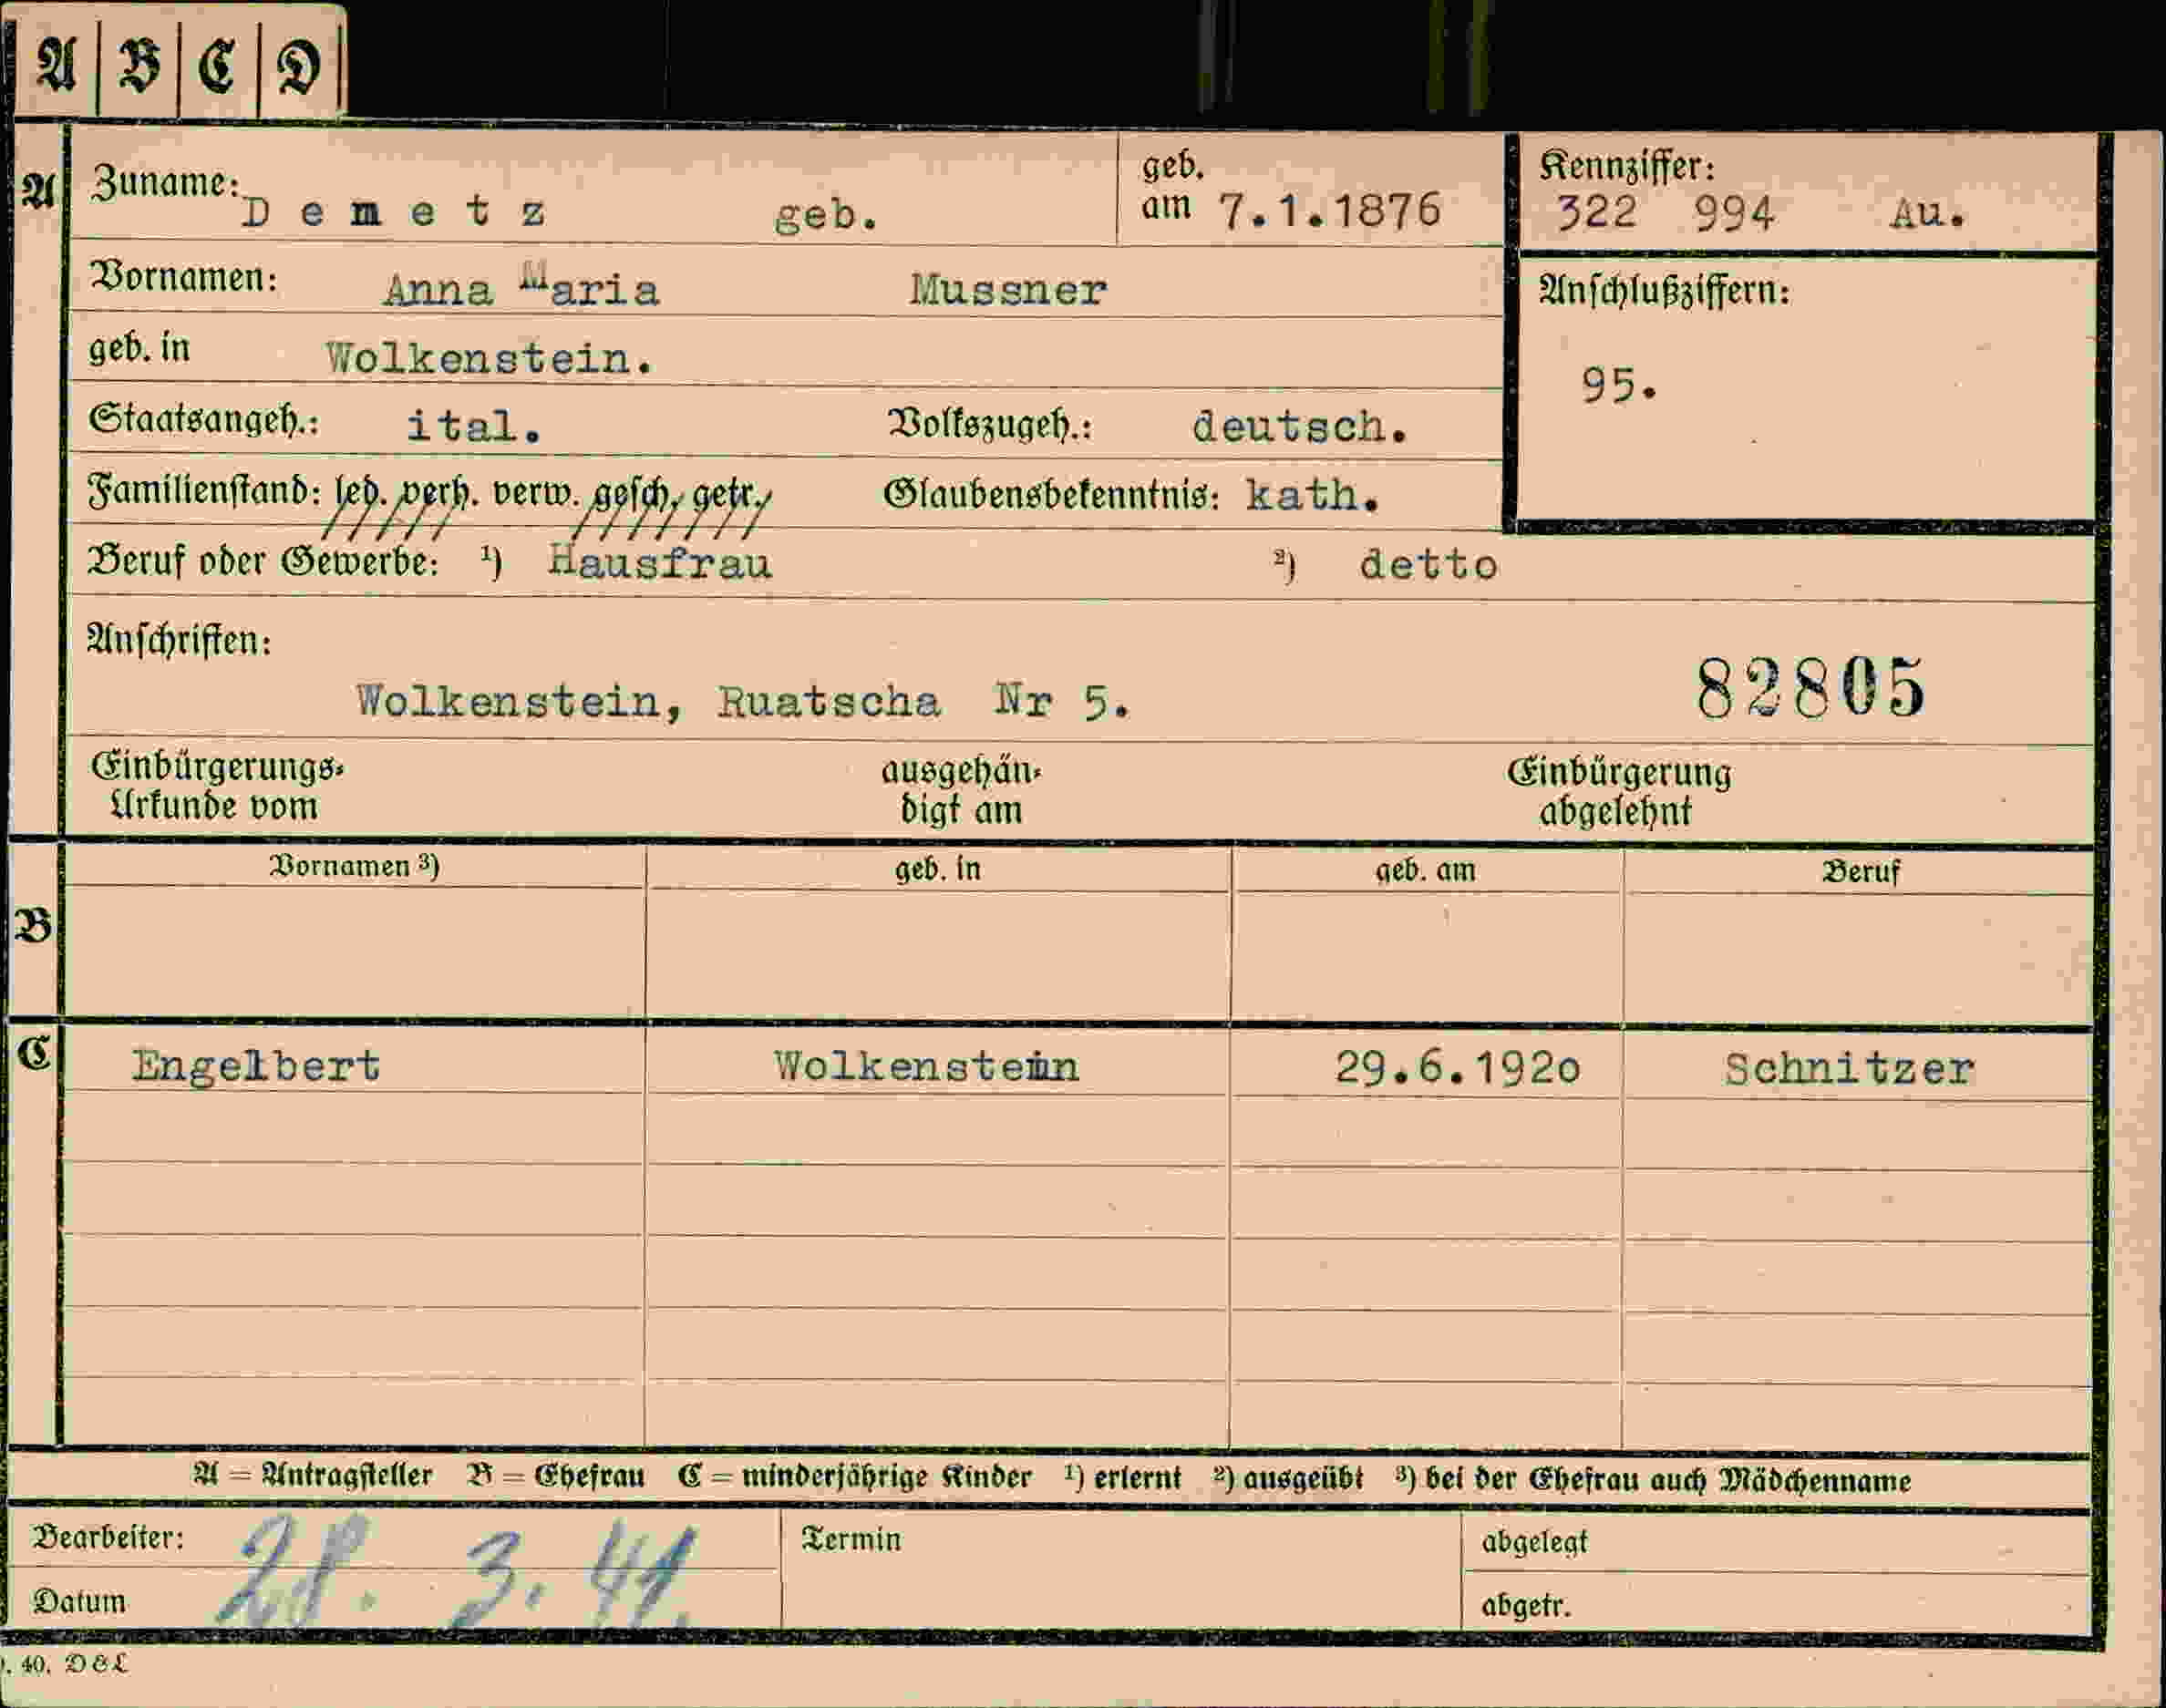 A B C D
A Zuname: Demetz geb. geb. am 7.1.1876 Kennziffer: 322 994 Au.
Vornamen: Anna Maria Mussner Anschlußziffern:
geb. in Wolkenstein. 95.
Staatsangeh.: ital. Volkszugeh.: deutsch.
Familienstand: led. verh. verw. gesch. getr. Glaubensbekenntnis: kath.
Beruf oder Gewerbe: ¹) Hausfrau ²) detto
Anschriften:
Wolkenstein, Ruatscha Nr 5. 82805
Einbürgerungs- ausgehän- Einbürgerung
Urkunde vom digt am abgelehnt
Vornamen ³) geb. in geb. am Beruf
B
C Engelbert Wolkenstein 29.6.192o Schnitzer
A = Antragsteller B = Ehefrau C = minderjährige Kinder ¹) erlernt ²) ausgeübt ³) bei der Ehefrau auch Mädchenname
Bearbeiter: Termin abgelegt
Datum 28. 3. 41. abgetr.
. 40. D & L